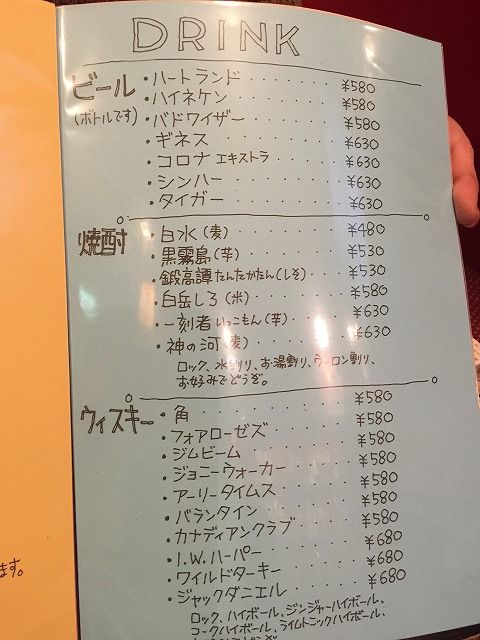 DRINK
ビール
(ボトルです)
・ハートランド ¥580
・ハイネケン ¥580
・バドワイザー ¥580
・ギネス ¥630
・コロナ エキストラ ¥630
・シンハー ¥630
・タイガー ¥630
焼酎
・白水(麦) ¥480
・黒霧島(芋) ¥530
・鍛高譚たんたかたん(しそ) ¥530
・白岳しろ(米) ¥580
・一刻者いっこもん(芋) ¥630
・神の河(麦) ¥630
ロック、水割り、お湯割り、ウーロン割り、
お好みでどうぞ。
ウィスキー
・角 ¥580
・フォアローゼズ ¥580
・ジムビーム ¥580
・ジョニーウォーカー ¥580
・アーリータイムス ¥580
・バランタイン ¥580
・カナディアンクラブ ¥580
・I.W.ハーパー ¥680
・ワイルドターキー ¥680
・ジャックダニエル ¥680
ロック、ハイボール、ジンジャーハイボール、
コークハイボール、ライムトニックハイボール、
ます。